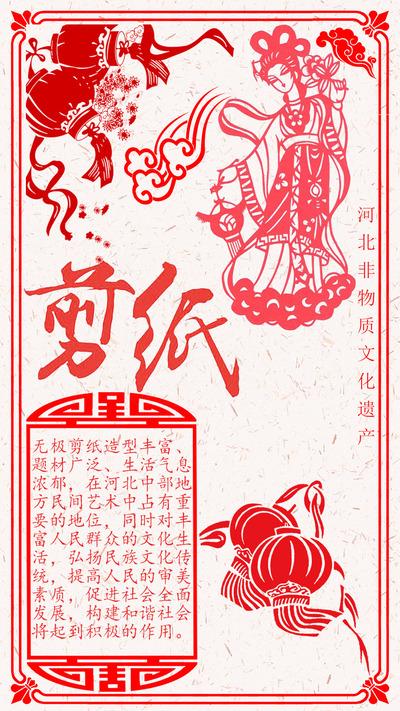 剪纸
河北非物质文化遗产
无极剪纸造型丰富、
题材广泛、生活气息
浓郁，在河北中部地
方民间艺术中占有重
要的地位，同时对丰
富人民群众的文化生
活，弘扬民族文化传
统，提高人民的审美
素质，促进社会全面
发展，构建和谐社会
将起到积极的作用。